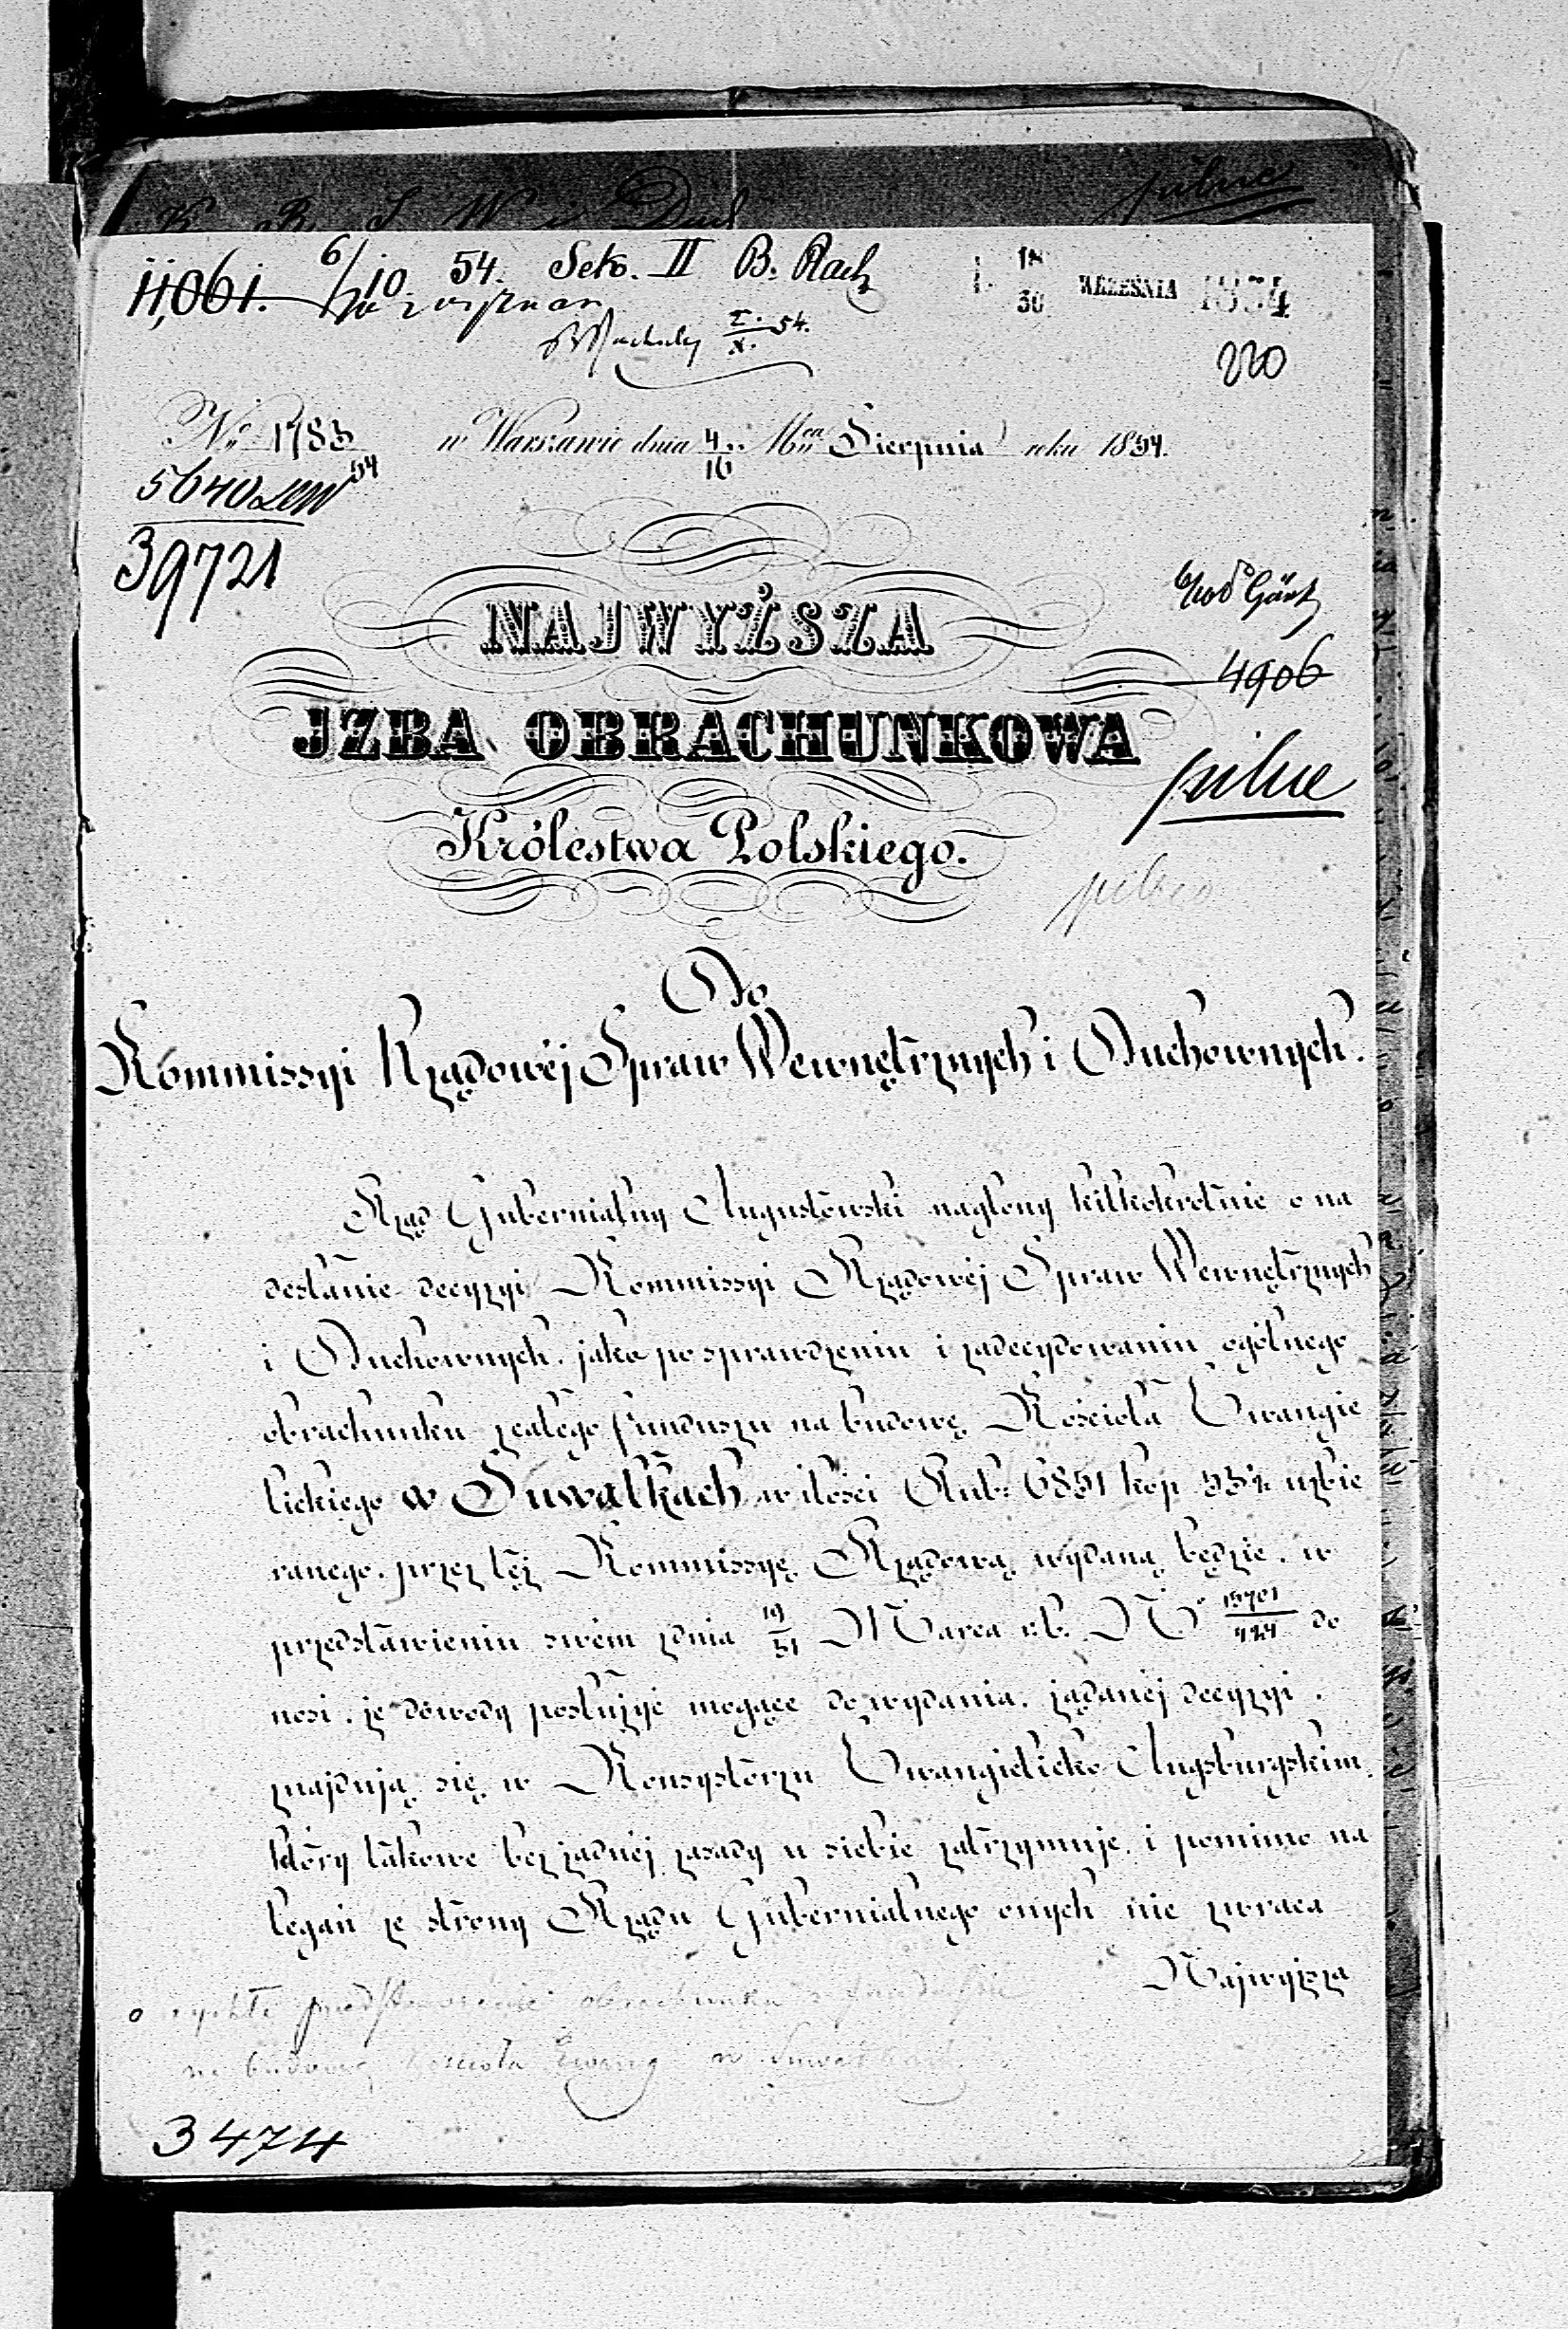 pilne
11,061. 6/10 54. Sek. II B. Rach
18/30 WRZEŚNIA 1854
220
№ 1783 w Warszawie dnia 4/16 Mca Sierpnia roku 1854.
5640 54
39721
NAJWYŻSZA
4906
JZBA OBRACHUNKOWA
pilne
Królestwa Polskiego.
pilno
Do
Kommissyi Rządowéj Spraw Wewnętrznych i Duchownych.
Rząd Gubernialny Augustowski naglony kilkokrotnie o na
desłanie decyzyi Kommissyi Rządowéj Spraw Wewnętrznych
i Duchownych, jaka po sprawdzeniu i zadecydowaniu ogólnego
obrachunku z całego funduszu na budowę Kościoła Ewangie
lickiego w Suwałkach w ilości Rub: 6851 kop 53½ uzbie
ranego, przez tęż Kommissyę Rządową wydaną będzie, w
przedstawieniu swém z dnia 19/31 Marca r.b. No 15701/424 do
nosi, że dowody posłużyć mogące do wydania, żądanéj decyzyi,
znajdują się w Konsystorzu Ewangielicko Augsburgskim,
który takowe bez żadnéj zasady u siebie zatrzymuje, i pomimo na
legań ze strony Rządu Gubernialnego onych nie zwraca
Najwyższa
o rychłe przedstawienie obrachunku z funduszu
na budowę Kościoła Ewang w Suwałkach
3474